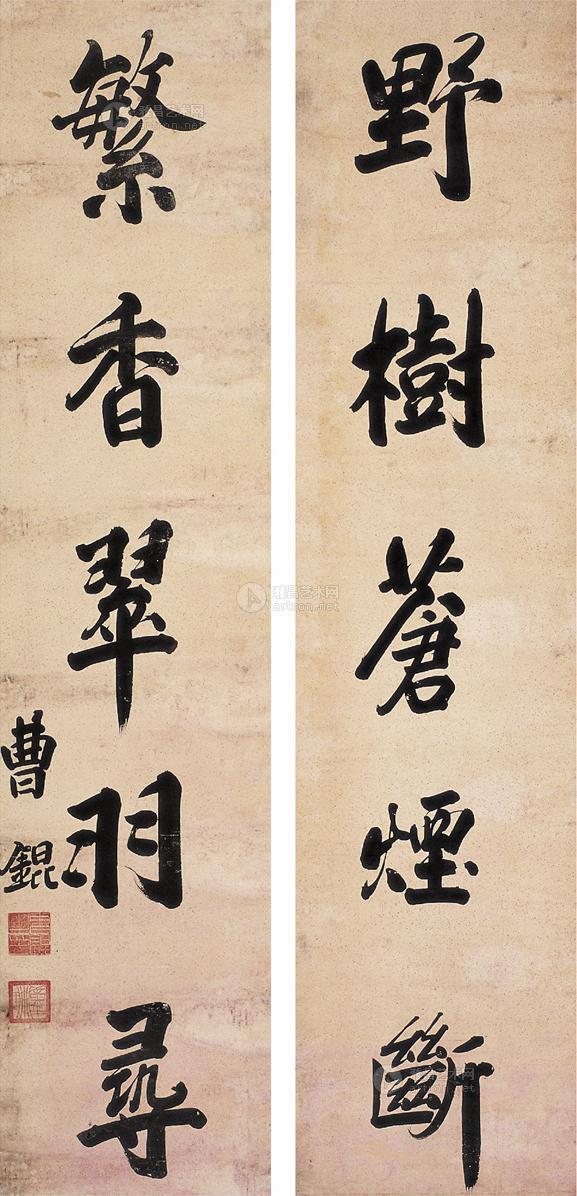 野樹蒼煙斷
繁香翠羽尋
曹錕
雅昌艺术网
artron.net